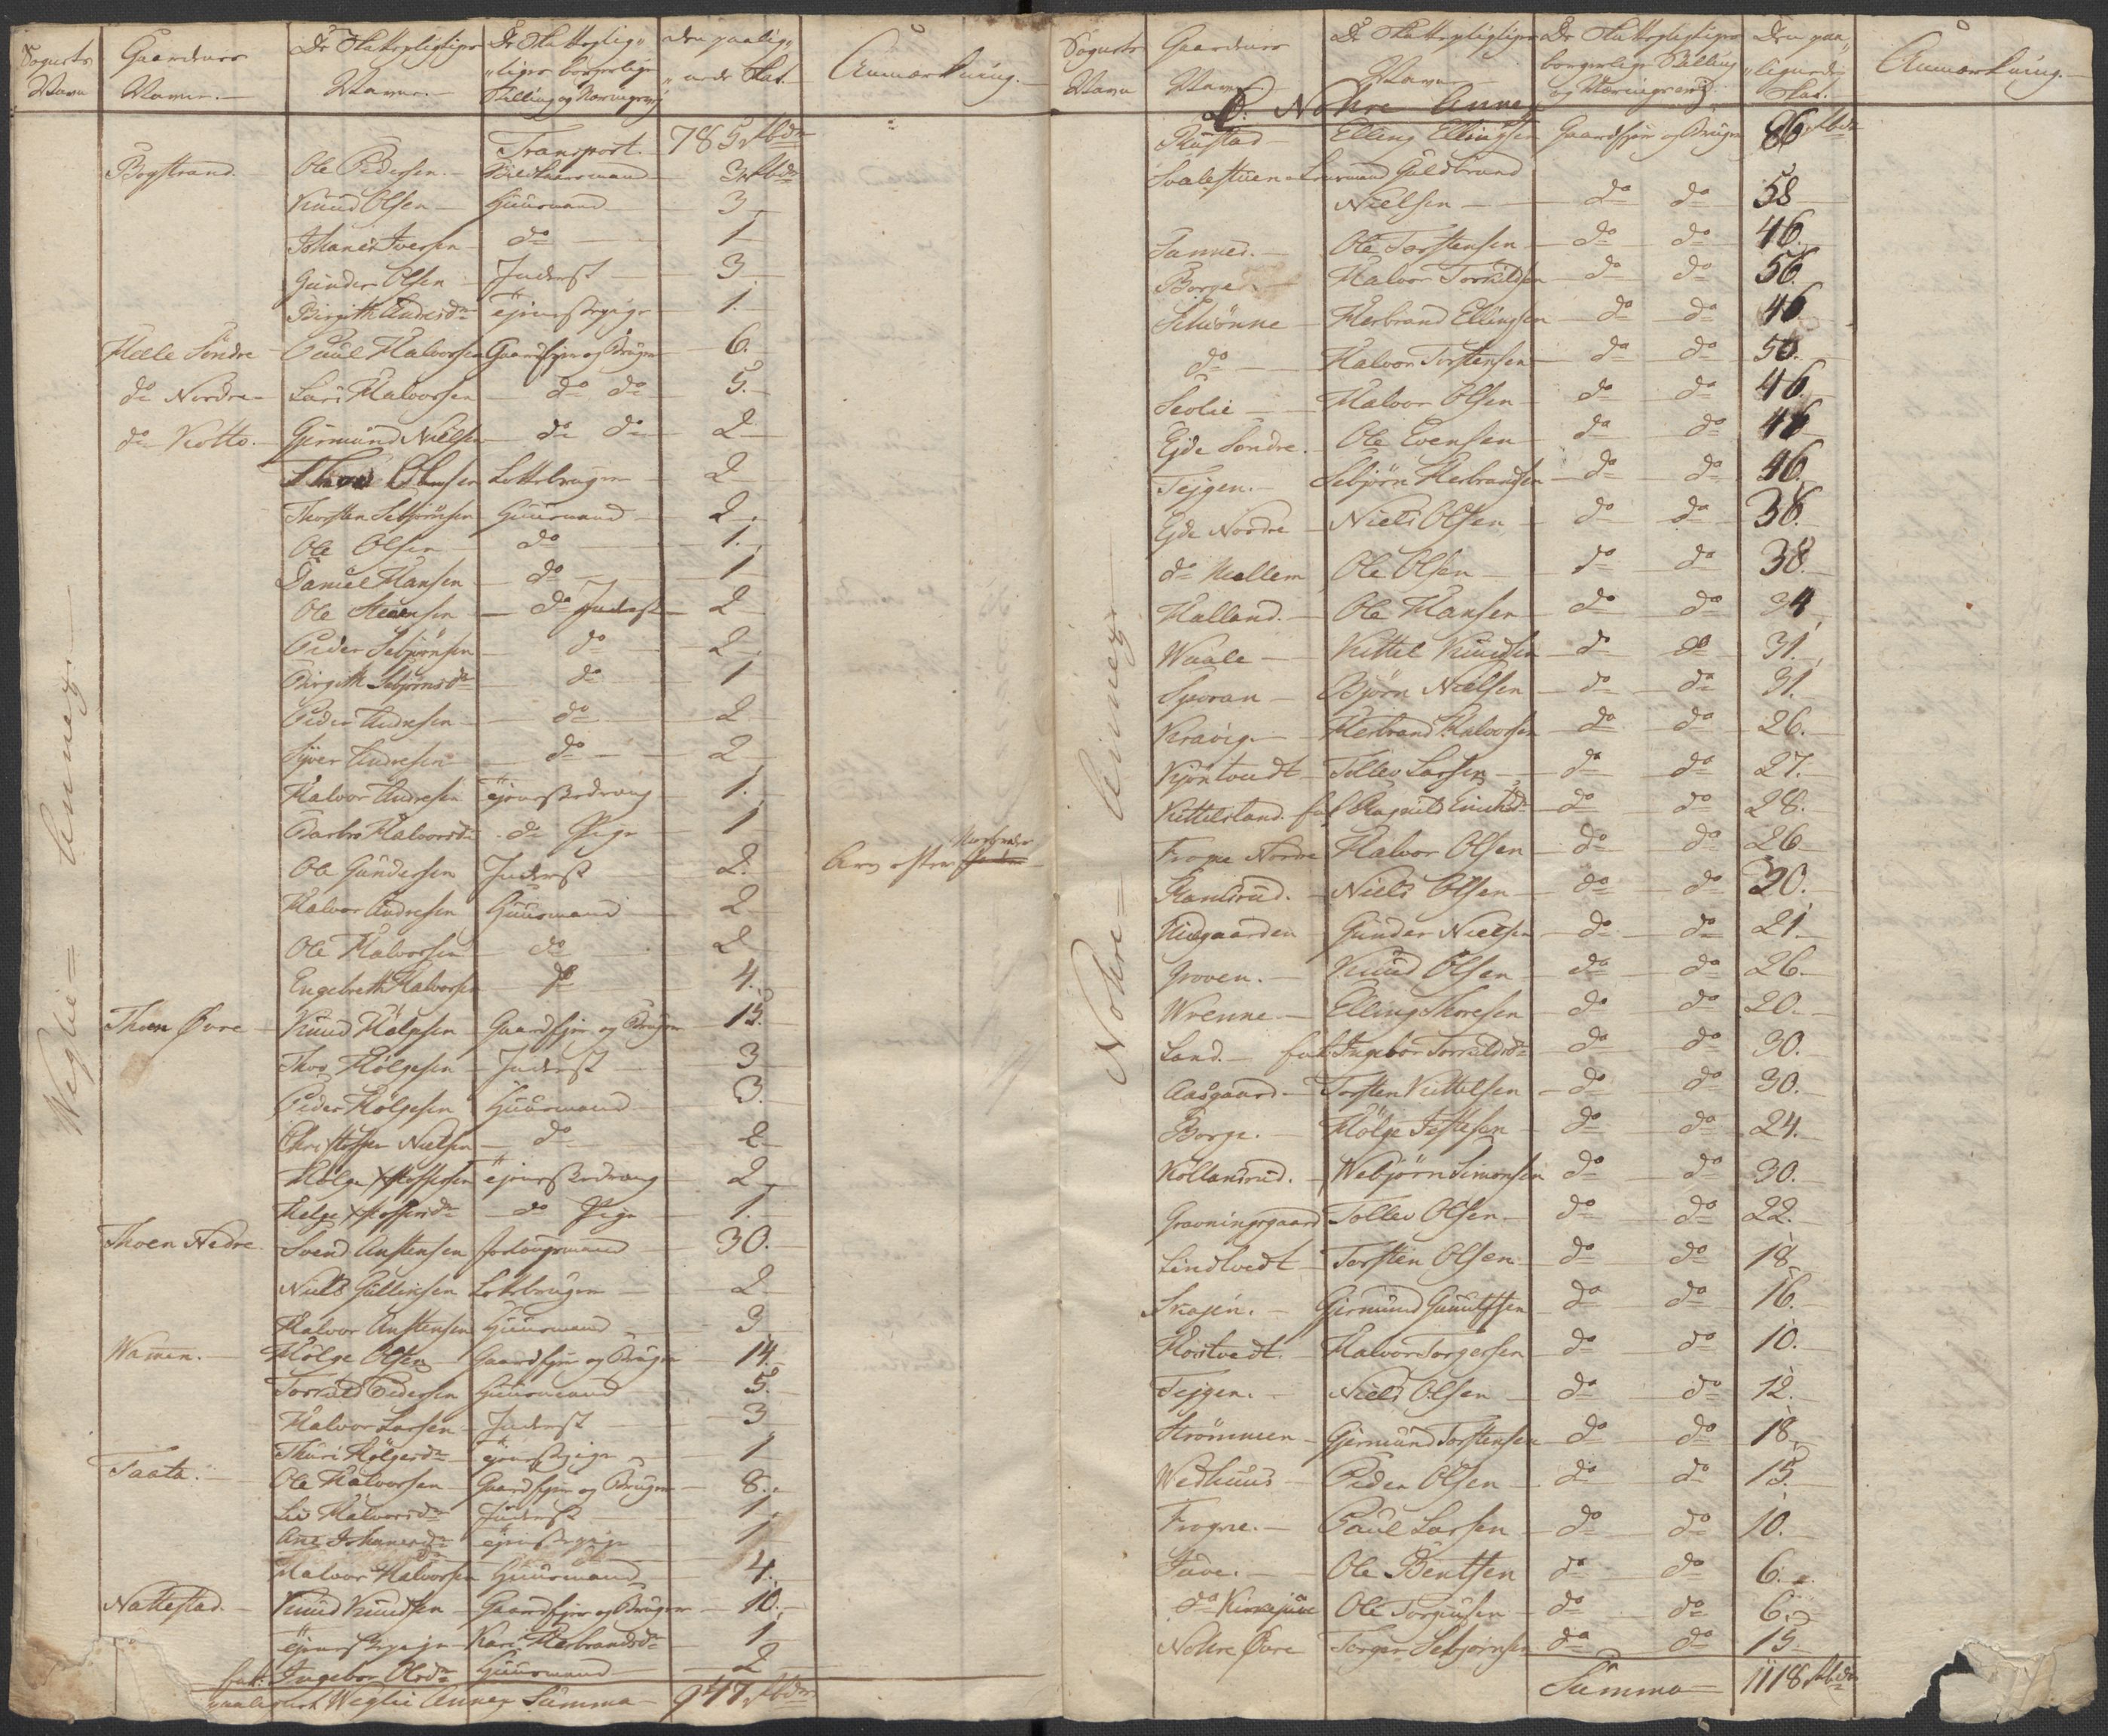 Sognets Navn | Gaardenes Navne. | De Skattepligtiges Navne. | De Skattepligtiges borgerlige Stilling og Næringsvej | den paalignede Skat. | Anmærkning.
Weglie Annex
Transport. 785 Rbdr
Bogstrand. Ole Pedersen. Huusmand 3 Rbdr
Knud Olsen Huusmand 3
Johanes Iversen do 1
Gunder Olsen Inderst 3
Birgith Andersdr Tjenestepige 1.
Helle Söndre Paul Halvorsen Gaardejer og Bruger 6.
do Nordre Lars Halvorsen do do 5.
do Kotto. Gjermund Nielsen do do 2
Thord Olsen Lottebruger 2
Thorsten Sebjörnsen Huusmand 2.
Ole Olsen do 1.
Daniel Hansen do 1
Ole Steensen do Inderst 2
Peder Sebjörnsen do 2.
Birgith Sebjörnsdr do 1
Peder Andresen do 2
Syver Andresen do 2
Halvor Andresen Tjenestedreng 1.
Barbro Halvorsdr do Pige 1
Ole Gundersen Inderst 2. Arv efter
Halvor Andresen Huusmand 2
Ole Halvorsen do 2
Engebreth Halvorsen do 4.
Thoen Övre Knud Hölgesen Gaardejer og Bruger 15.
Thor Hölgesen Inderst 3
Peder Hölgesen Huusmand 3.
Christopher Nielsen do 2
Hölge Xstophersen Tjenestedreng 2
Helge Xstophersdr do Pige 1.
Thoen Nedre. Svend Anstensen Forlougsmand 30.
Niels Gullinsen Lottebruger 2
Halvor Anstensen Huusmand 3
Wamen. Hölge Olsen Gaardejer og Bruger 14.
Torkild Pedersen Huusmand 5.
Halvor Larsen Inderst 3
Thuri Hölgesdr Tjenestepige 1
Taata. Ole Halvorsen Gaardejer og Bruger 8.
Liv Halvorsdr Inderst 1.
Ane Johanesdr Tjenestepige 1
Halvor Halvorsen Huusmand 4.
Nattestad. Knud Knudsen Gaardejer og Bruger 10.
Tjenestepige Kari Herbrandsdr 1
fat: Ingebor Olsdr Huusmand 2
Weglie Annex Summa 947 Rbdr
Sognets Navn | Gaardenes Navne | De Skattepligtiges Navne | De Skattepligtiges borgerlige Stilling og Næringsvej | Den paalignede Skat. | Anmærkning.
Nohre Annex
Nohre Annex
Rustad Elling Ellingsen Gaardejer og Bruger 86 Rbdr
Svalestuen Lensmand Guldbrand
Nielsen do do 58
Sanned. Ole Torstensen do do 46.
Borge. Halvor Torkildsen do do 56.
Schönne Herbrand Ellingsen do do 46
do Halvor Torstensen do do 50.
Seolie Halvor Olsen do do 46.
Ejde Söndre. Ole Evensen do do 46
Tejgen. Sebjörn Herbrandsen do do 46.
Ejde Nordre Niels Olsen do do 36.
do Mellem Ole Olsen do do 38.
Halland. Ole Hansen do do 34
Waale Kittel Knudsen do do 31.
Sporan Björn Nielsen do do 31.
Kravig. Herbrand Halvorsen do do 26.
Kjöntvedt Tollev Larsen do do 27.
Kittelsland. Ragnild do do 28.
Frogne Nordre Halvor Olsen do do 26
Niels Olsen do do 20.
Gunder Nielsen do do 21
Groven. Knud Olsen do do 26.
Wrenne. Elling Thoresen do do 20.
Land. fat: Ingebor Torkildsdr do do 30.
Aasgaard. Torsten Kittelsen do do 30.
Borge. Hölge do do 24.
Kollandrud. Webjörn Simonsen do do 30.
Gravningsgaard Tollev Olsen do do 22.
Lindtvedt Torsten Olsen do do 18
Skajen. Gjermund Gunulfsen do do 16.
Horstvedt. Halvor Torgersen do do 10.
Tejgen. Niels Olsen do do 12.
Strömmen Gjermund Torstensen do do 18
Wedhuus Peder Olsen do do 15.
Frogne. Paul Larsen do do 10.
Juve. Ole Bentsen do do 6.
do Kirkejuve Ole Torgiusen do do 6.
Nohre Övre Torger Sebjörnsen do do 15
Summa 1118 Rbdr